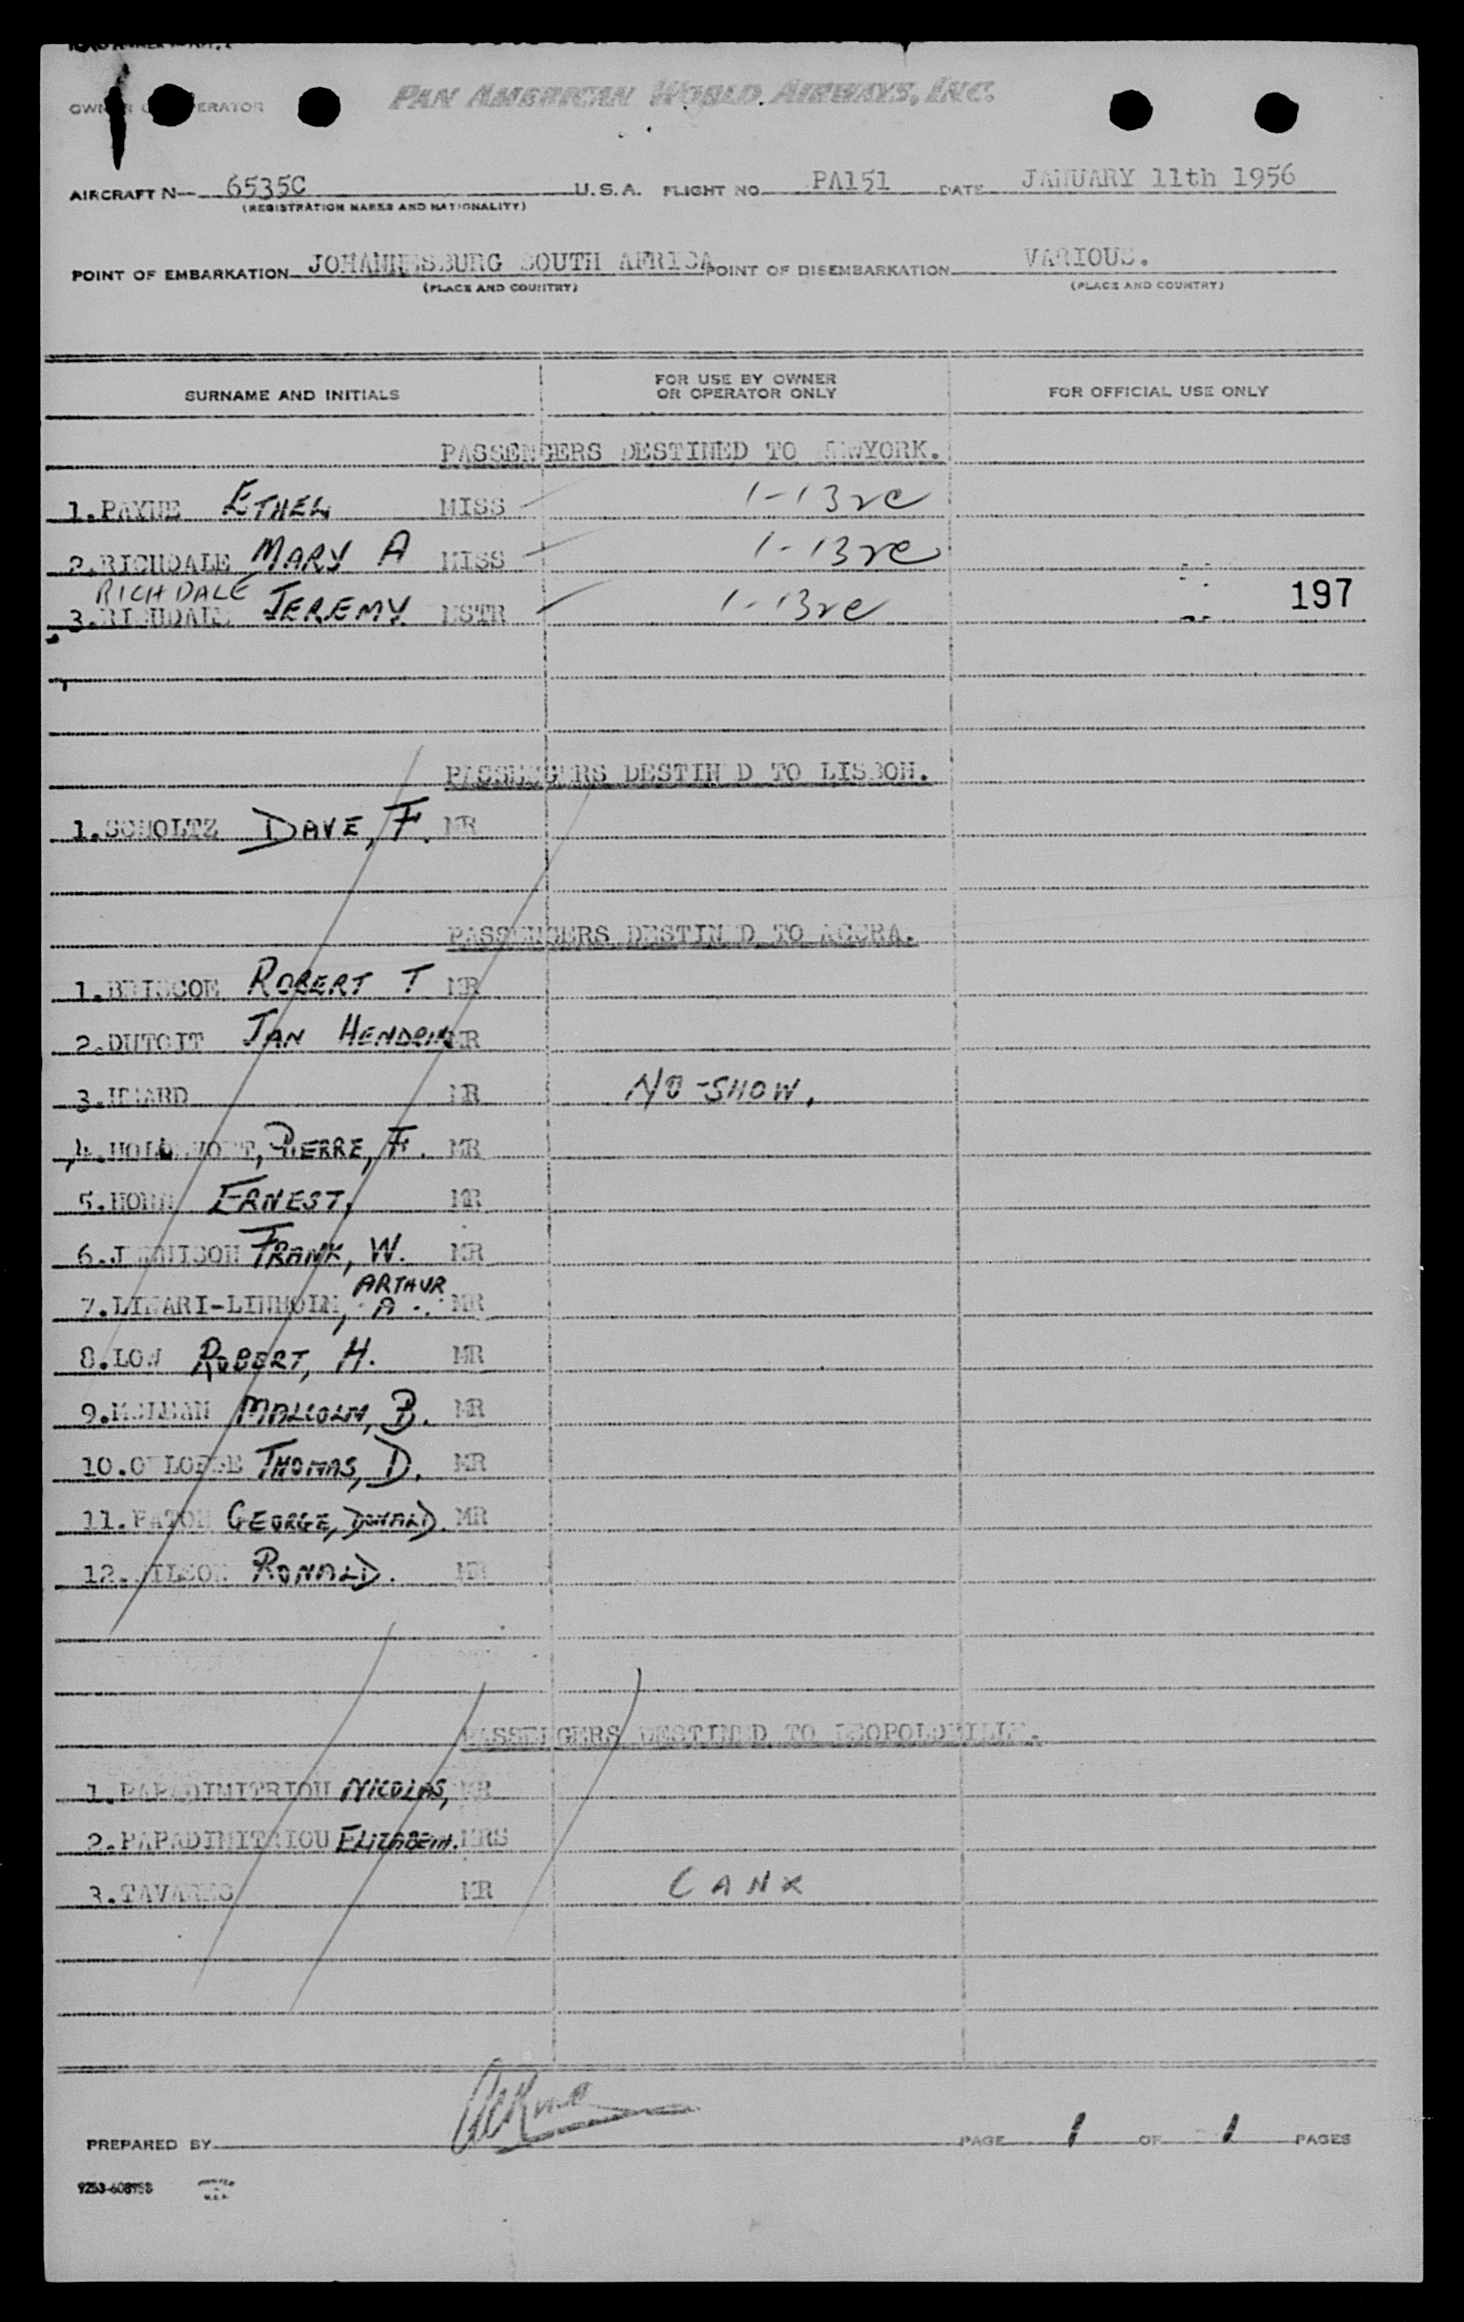 OWNER OR OPERATOR PAN AMERICAN WORLD AIRWAYS, INC.
AIRCRAFT N— 6535C U.S.A. FLIGHT NO. PA151 DATE JANUARY 11th 1956
(REGISTRATION MARKS AND NATIONALITY)
POINT OF EMBARKATION JOHANNESBURG SOUTH AFRICA POINT OF DISEMBARKATION VARIOUS.
(PLACE AND COUNTRY) (PLACE AND COUNTRY)
SURNAME AND INITIALS FOR USE BY OWNER OR OPERATOR ONLY FOR OFFICIAL USE ONLY
PASSENGERS DESTINED TO NEWYORK.
1.PAYNE ETHEL MISS 1-13
2.RICHDALE MARY A MISS 1-13
RICHDALE
3.RICHDALE JEREMY MSTR 1-13 197
PASSENGERS DESTINED TO LISBON.
1.SCHOLTZ DAVE, F. MR
PASSENGERS DESTINED TO ACCRA.
1.BRISCOE ROBERT T MR
2.DUTOIT JAN HENDRIK MR
3. MR NO-SHOW.
4. PIERRE, F. MR
5. ERNEST, MR
6. FRANK, W. MR
ARTHUR
7.LINARI-LINHOLM, A. MR
8.LOW ROBERT, H. MR
9.MCLEAN MALCOLM, B. MR
10. THOMAS, D. MR
11.PATON GEORGE, DONALD. MR
12.WILSON RONALD. MR
PASSENGERS DESTINED TO LEOPOLDVILLE.
1.PAPADIMITRIOU NICOLAS, MR
2.PAPADIMITRIOU ELIZABETH. MRS
3.TAVARES MR CANX
PREPARED BY PAGE 1 OF 1 PAGES